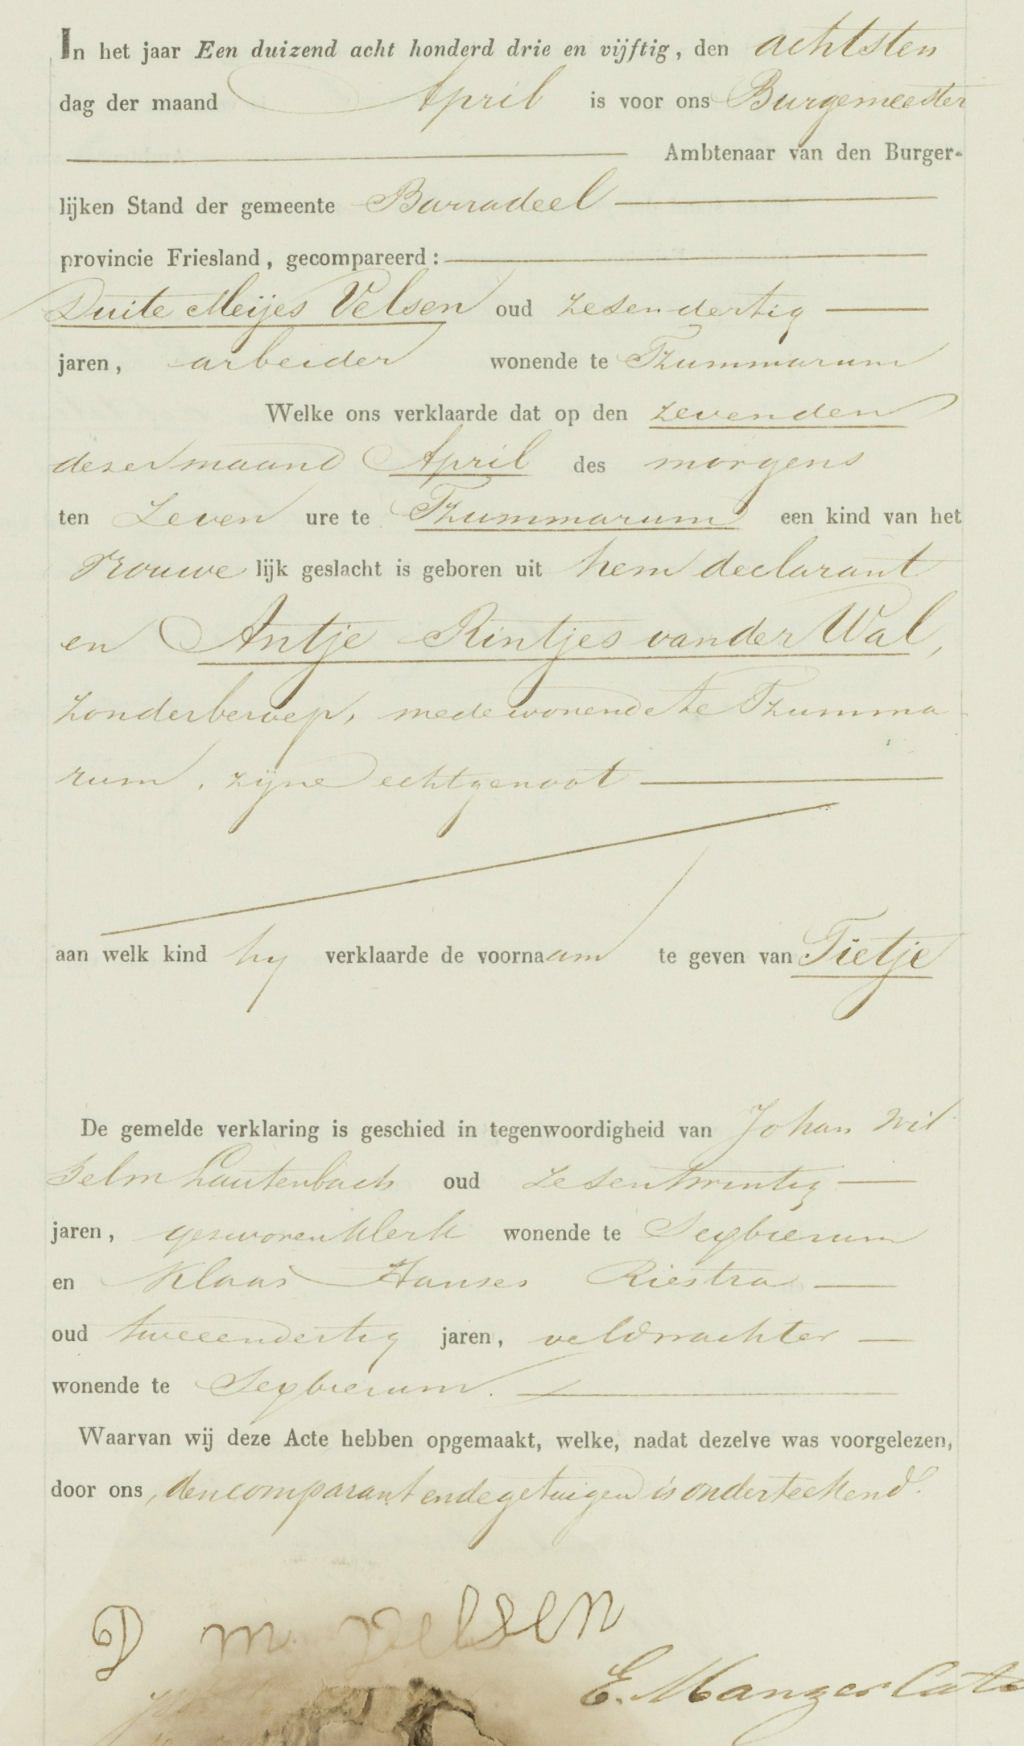 In het jaar Een duizend acht honderd drie en vijftig, den achtsten
dag der maand April is voor ons Burgemeester
Ambtenaar van den Burger-
lijken Stand der gemeente Barradeel
provincie Friesland, gecompareerd:
Duite Meijes Velsen oud zesendertig
jaren, arbeider wonende te Tzummarum
Welke ons verklaarde dat op den zevenden
dezer maand April des morgens
ten zeven ure te Tzummarum een kind van het
vrouwe lijk geslacht is geboren uit hem declarant
en Antje Rintjes van der Wal,
zonder beroep, mede wonende te Tzumma
rum, zijne echtgenoot
aan welk kind hy verklaarde de voornaam te geven van Tietje
De gemelde verklaring is geschied in tegenwoordigheid van Johan Wil
helm Lautenbach oud zesentwintig
jaren, gezworen klerk wonende te Sexbierum
en Klaas Hanses Riestra
oud tweeendertig jaren, veldwachter
wonende te Sexbierum.
Waarvan wij deze Acte hebben opgemaakt, welke, nadat dezelve was voorgelezen,
door ons, den comparant en de getuigen is onderteekend.
D M Velsen
E. Manger Cats